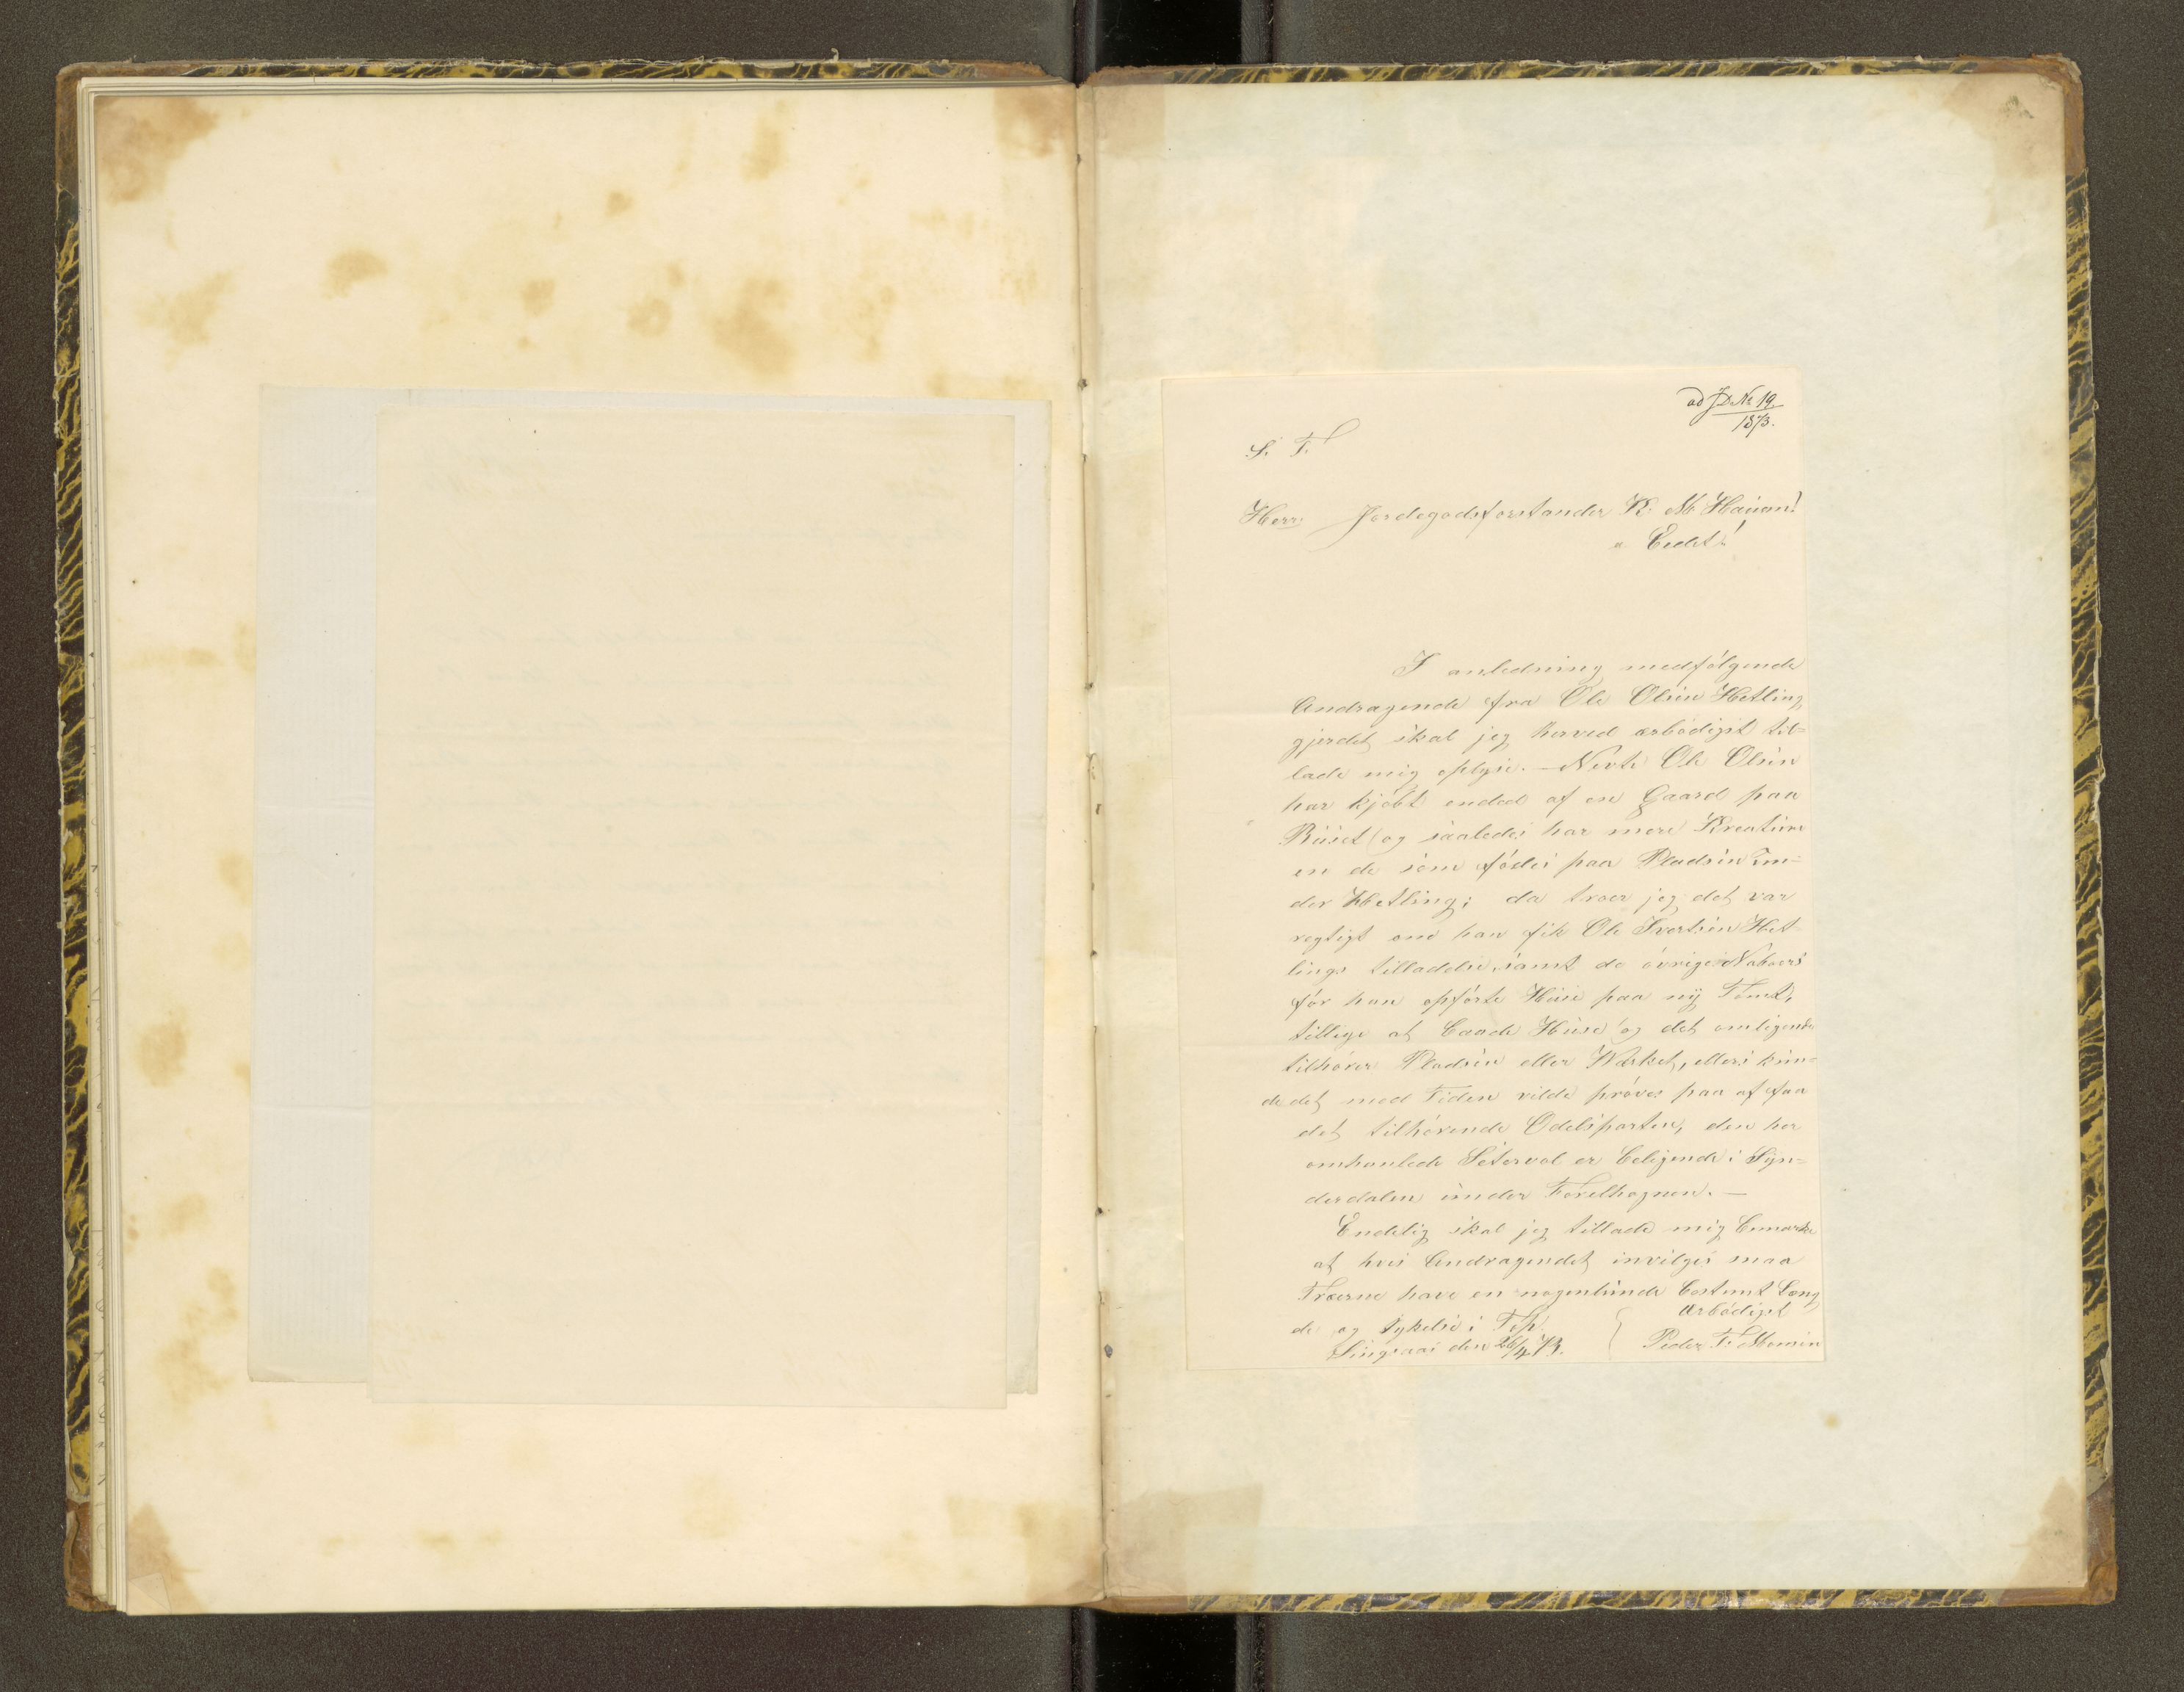 ad J.D. № 19.
1873.
S. T.
Herr. Jordegodsforstander K. M Hauan!
a Eidet!
I anledning medfølgende
Andragende fra Ole Olsen Hetling
gjerdet skal jeg herved ærbødigst til=
lade mig oplyse. — Nevte Ole Olsen
har kjøbt endel af en Gaard paa
Buset (og saaledes har mere Kreature
en de som fødes paa Pladsen un=
der Hetling; da troer jeg det var
regtigt om han fik Ole Ivertsen Het=
lings tilladelse, samt de øvrige Naboers
før han opførte Huse paa ny Tomt,
tillige at baade Huse og det omligende
tilhører Pladsen eller Værket, ellers kun=
de det med Tiden vilde prøves paa at faa
det tilhørende Odelsparten, den her
omhanlede Setervol er beligende i Syn=
derdalen under Forelhognen. —
Endelig skal jeg tillade mig bemærke
at hvis Andragendet invilges maa
Træerne have en nogenlunde bestemt Læng
de og tykelse i Top.
Singsaas den 26/4 73.
Ærbødigst
Peder T. Moesen